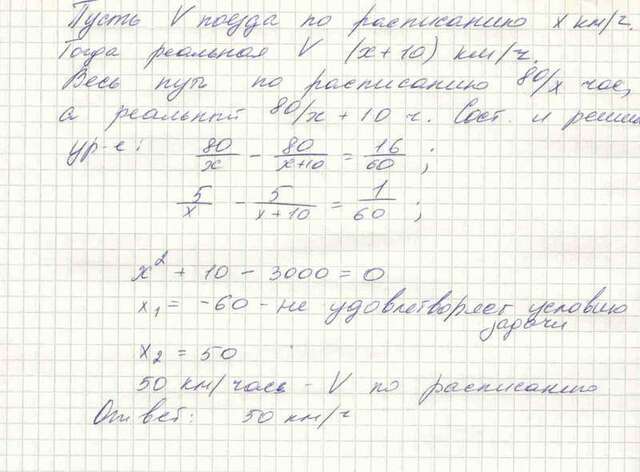 Пусть V поезда по расписанию x км/г.
Тогда реальная V (x+10) км/ч.
Весь путь по расписанию 80/x час,
а реальный 80/x+10 ч. Сост. и решим
ур-е: 80/x - 80/x+10 = 16/60 ;
5/x - 5/x+10 = 1/60 ;
x² + 10 - 3000 = 0
x₁ = -60 - не удовлетворяет условию
задачи
x₂ = 50
50 км/часы - V по расписанию
Ответ: 50 км/ч